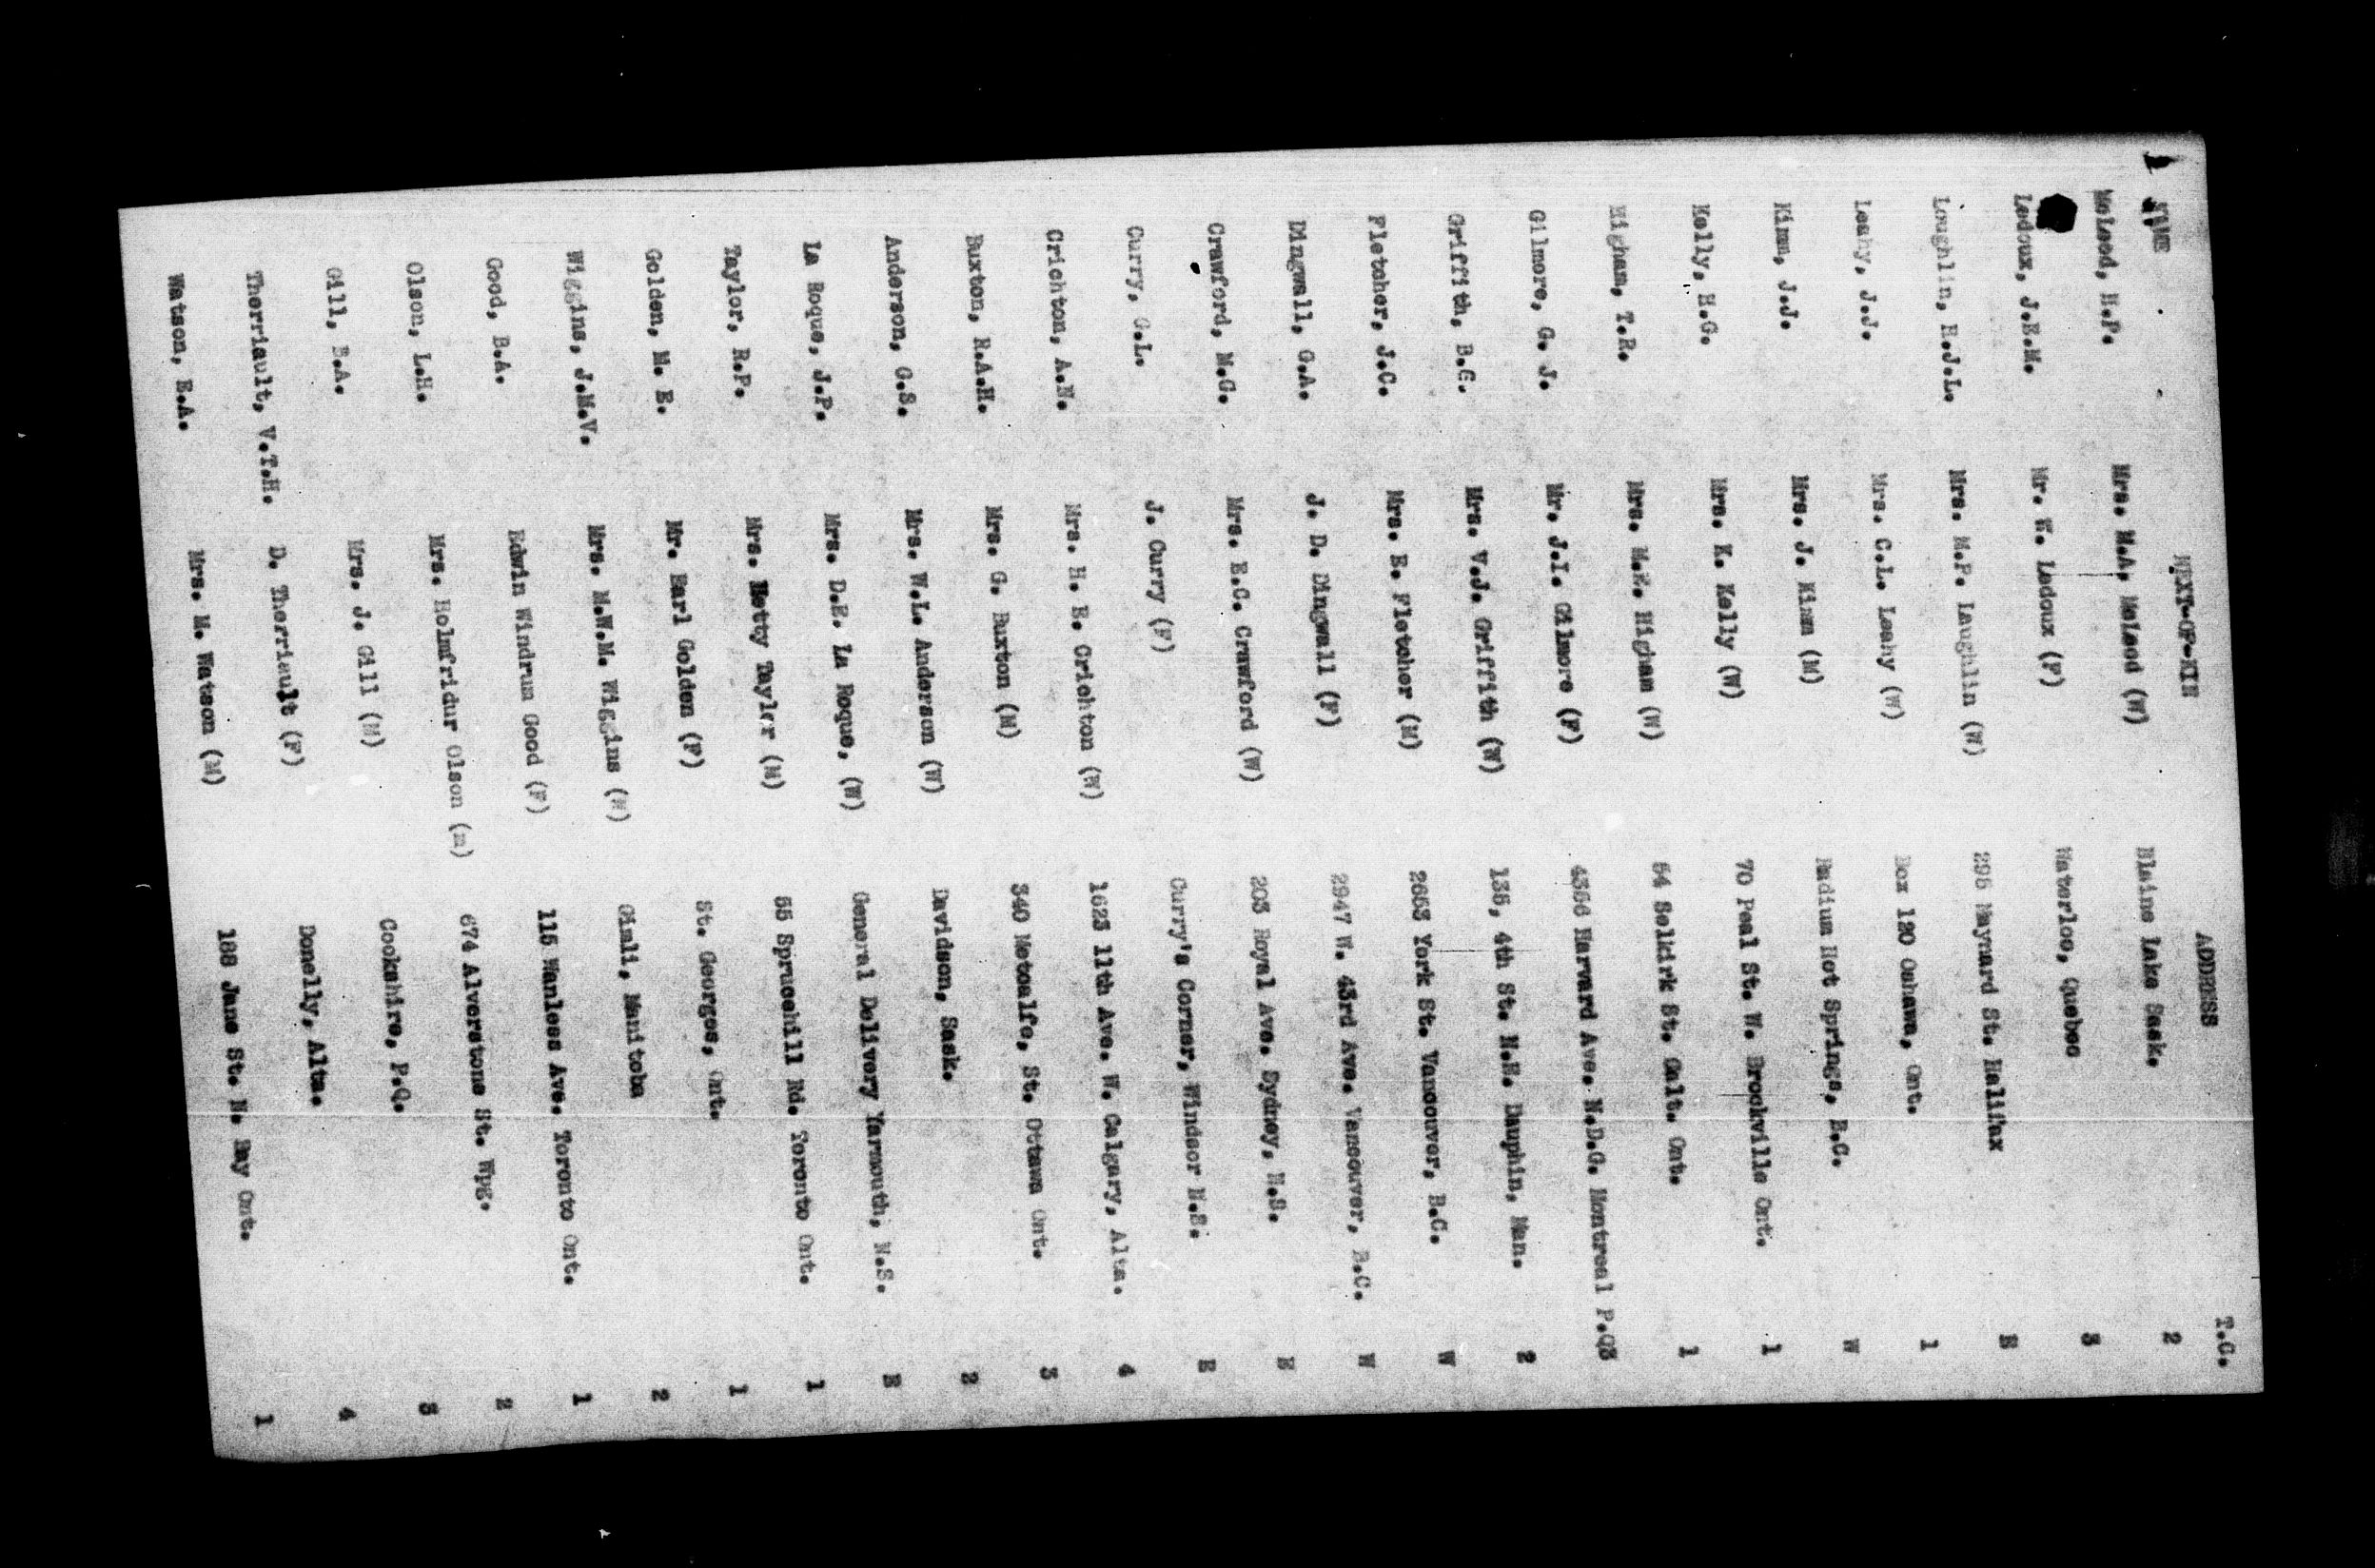 NAME NEXT-OF-KIN ADDRESS T.C.
McLeod, H.P. Mrs. M.A. McLeod (W) Blaine Lake Sask. 2
Ledoux, J.E.M. Mr. W. Ledoux (F) Waterloo, Quebec 3
Loughlin, R.J.L. Mrs. M.P. Laughlin (W) 295 Maynard St. Halifax E
Leahy, J.J. Mrs. C.L. Leahy (W) Box 120 Oshawa, Ont. 1
Kimm, J.J. Mrs. J. Kimm (M) Radium Hot Springs, B.C. W
Kelly, H.G. Mrs. K. Kelly (W) 70 Peal St. W. Brockville Ont. 1
Higham, T.R. Mrs. M.E. Higham (W) 54 Selkirk St. Galt. Ont. 1
Gilmore, G. J. Mr. J.I. Gilmore (F) 4356 Harvard Ave. N.D.G. Montreal P.Q3
Griffith, B.G. Mrs. V.J. Griffith (W) 135, 4th St. N.E. Dauphin, Man. 2
Fletcher, J.C. Mrs. E. Fletcher (M) 2653 York St. Vancouver, B.C. W
Dingwall, G.A. J. D. Dingwall (F) 2947 W. 43rd Ave. Vancouver, B.C. W
Crawford, M.G. Mrs. E.C. Crawford (W) 203 Royal Ave. Sydney, N.S. E
Curry, G.L. J. Curry (F) Curry's Corner, Windsor N.S. E
Crichton, A.N. Mrs. H. E. Crichton (W) 1623 11th Ave. W. Calgary, Alta. 4
Buxton, R.A.H. Mrs. G. Buxton (M) 340 Metcalfe, St. Ottawa Ont. 3
Anderson, G.S. Mrs. W.L. Anderson (W) Davidson, Sask. 2
La Roque, J.P. Mrs. D.E. La Roque, (W) General Delivery Yarmouth, N.S. E
Taylor, R.P. Mrs. Hetty Taylor (M) 55 Sprucehill Rd. Toronto Ont. 1
Golden, M. E. Mr. Earl Golden (F) St. Georges, Ont. 1
Wiggins, J.M.V. Mrs. M.W.M. Wiggins (W) Gimli, Manitoba 2
Good, B.A. Edwin Windrum Good (F) 115 Wanless Ave. Toronto Ont. 1
Olson, L.H. Mrs. Holmfridur Olson (m) 674 Alverstone St. Wpg. 2
Gill, E.A. Mrs. J. Gill (M) Cookshire, P.Q. 3
Therriault, V.T.H. D. Therriault (F) Donelly, Alta. 4
Watson, E.A. Mrs. M. Watson (M) 188 Jane St. N. Bay Ont. 1